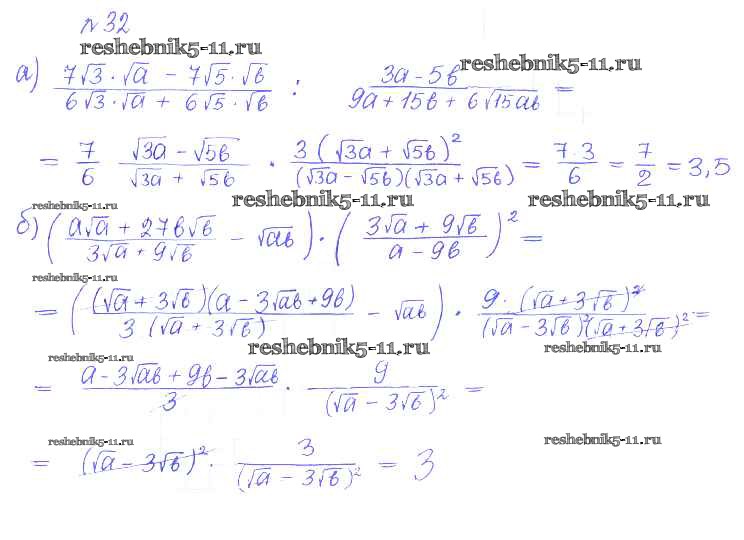 № 32
reshebnik5-11.ru
reshebnik5-11.ru
а) (7√3·√a − 7√5·√b)/(6√3·√a + 6√5·√b) : (3a−5b)/(9a+15b+6√15ab) =
= 7/6 (√3a − √5b)/(√3a + √5b) · 3(√3a + √5b)²/((√3a − √5b)(√3a + √5b)) = 7·3/6 = 7/2 = 3,5
reshebnik5-11.ru
reshebnik5-11.ru
reshebnik5-11.ru
б) ((a√a + 27b√b)/(3√a + 9√b) − √ab) · ((3√a + 9√b)/(a − 9b))² =
reshebnik5-11.ru
= ((√a + 3√b)(a − 3√ab + 9b)/(3(√a + 3√b)) − √ab) · 9·(√a + 3√b)²/((√a − 3√b)²(√a + 3√b)²) =
reshebnik5-11.ru
reshebnik5-11.ru
reshebnik5-11.ru
= (a − 3√ab + 9b − 3√ab)/3 · 9/(√a − 3√b)² =
reshebnik5-11.ru
reshebnik5-11.ru
= (√a − 3√b)² · 3/(√a − 3√b)² = 3